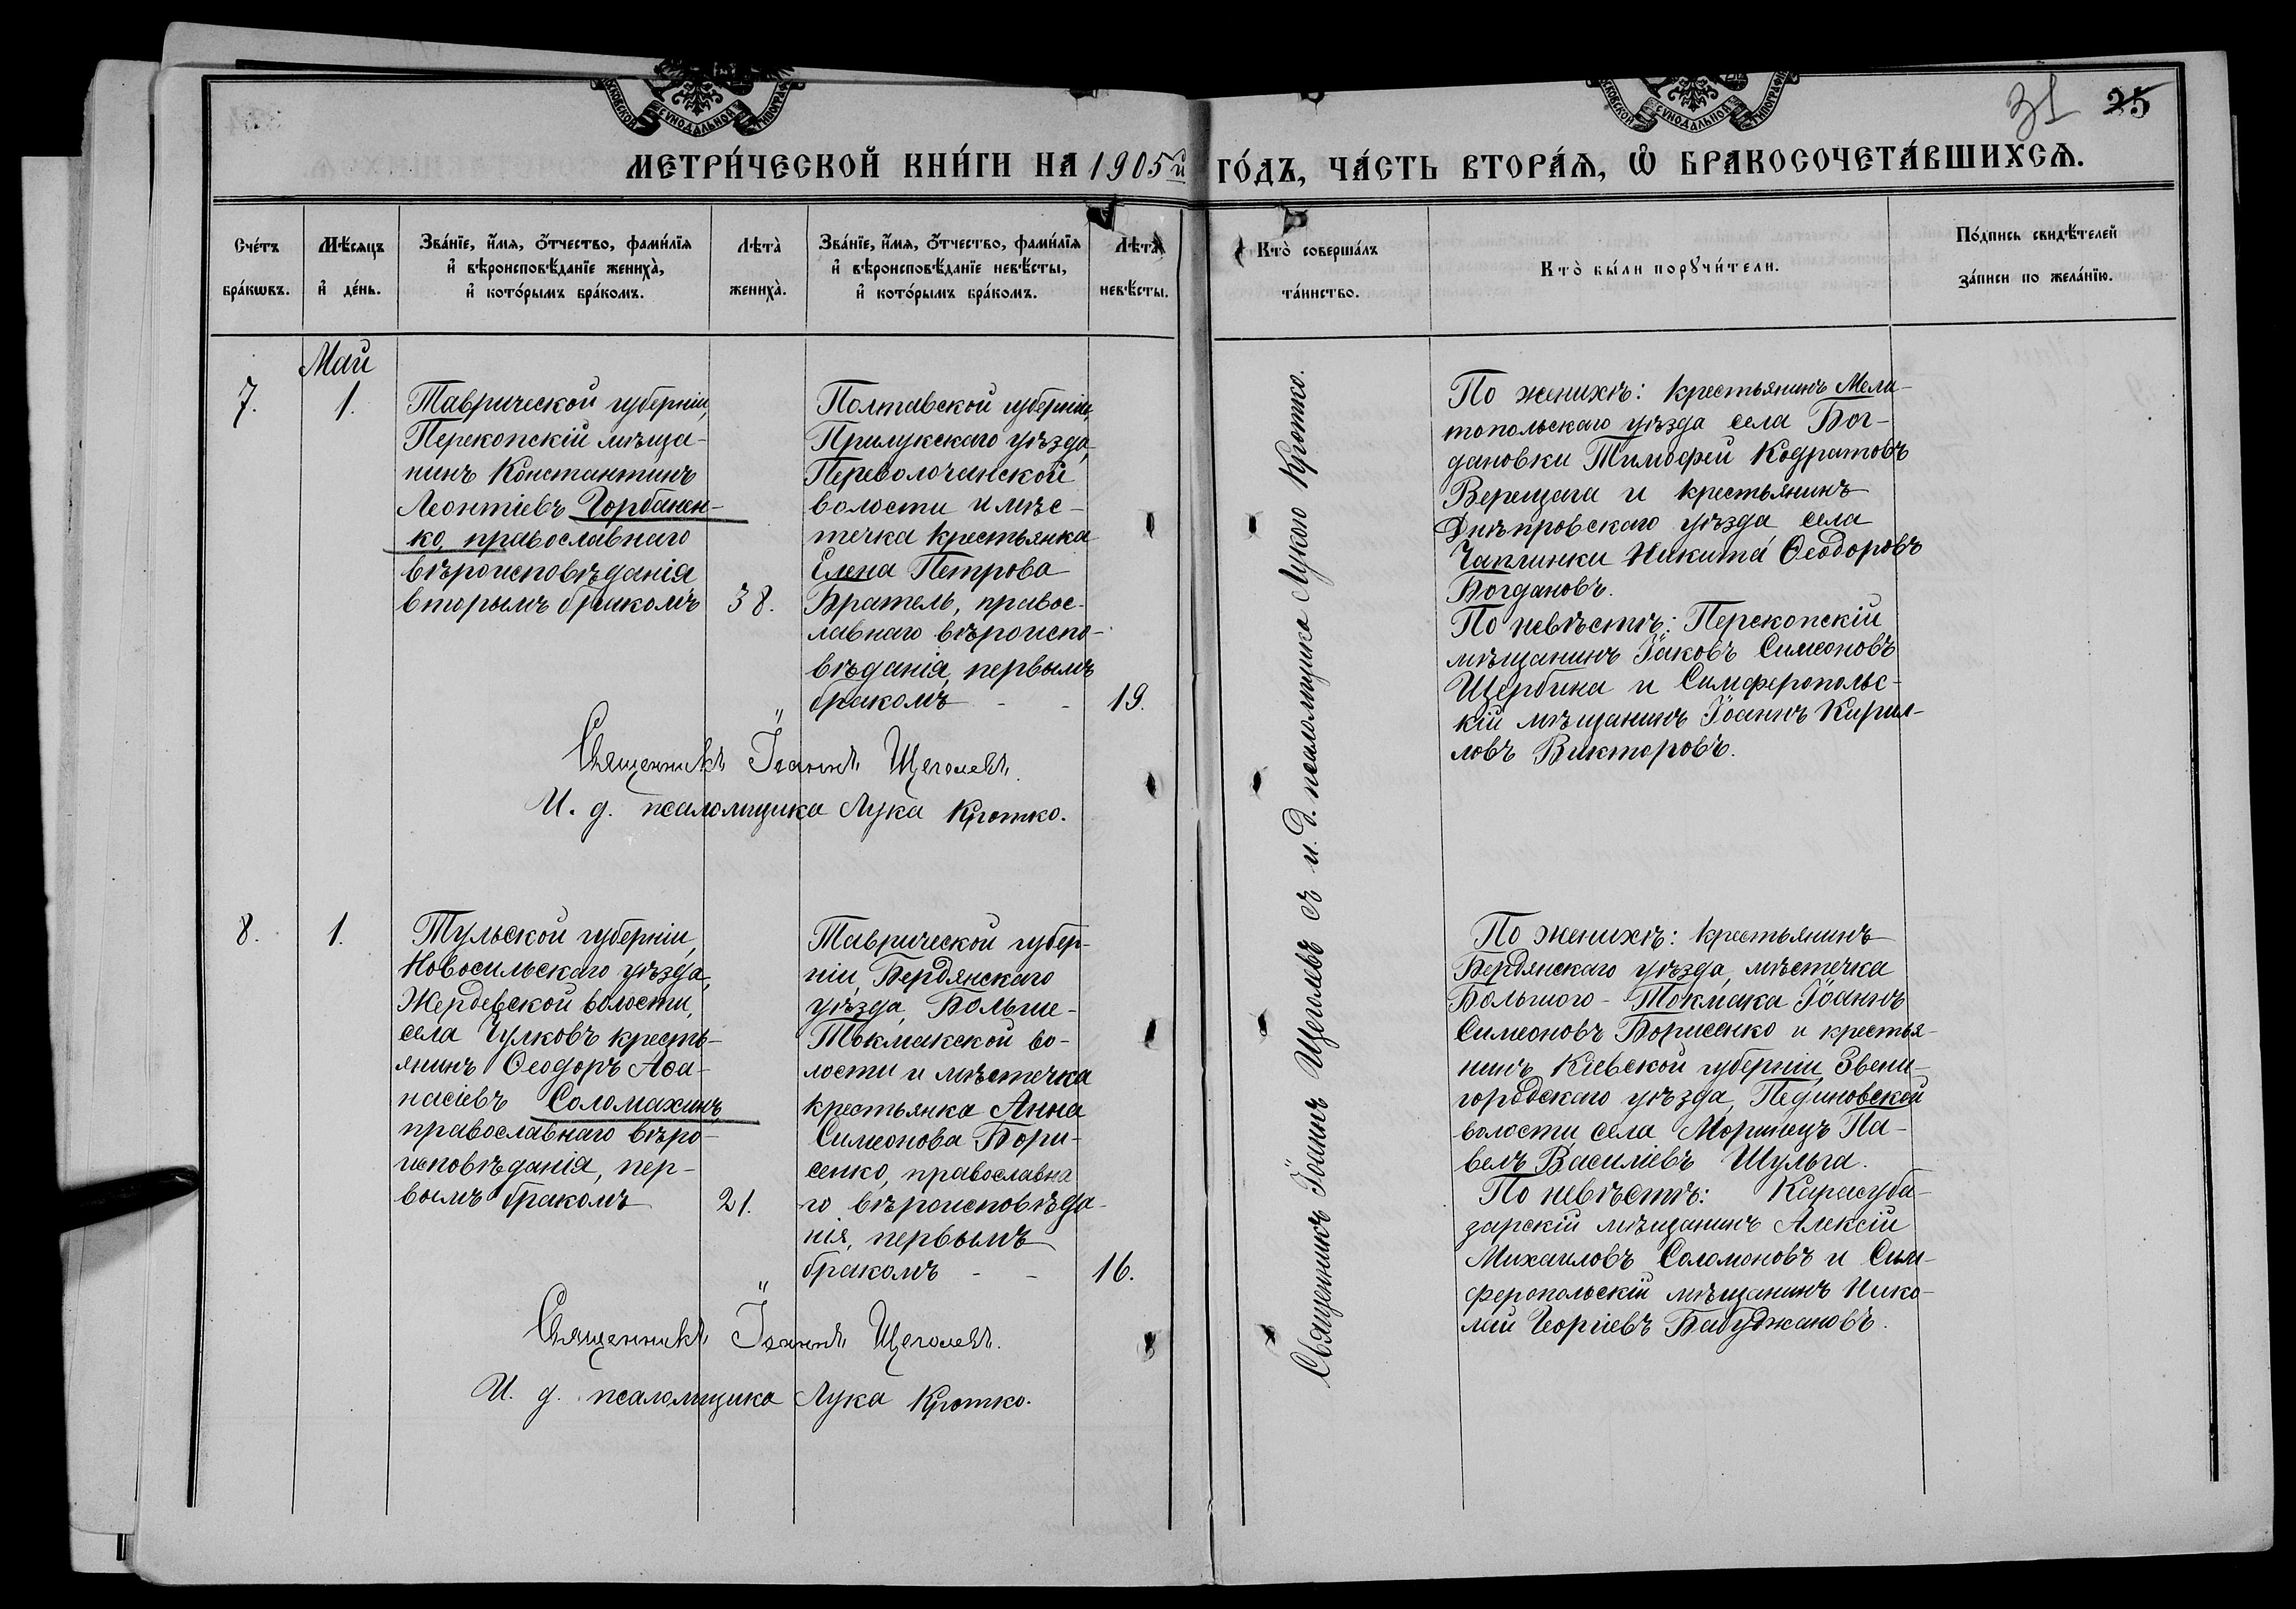 МОСКОВСКОЙ СУНОДАЛЬНОЙ ТИПОГРАФ
МОСКОВСКОЙ СУНОДАЛЬНОЙ ТИПОГРАФ
31 25
МЕТРИ́ЧЕСКОЙ КНИ́ГИ НА 1905й ГО́ДЪ, ЧА́СТЬ ВТОРА́Я, Ѽ БРАКОСОЧЕТА́ВШИХСЯ.
Сче́тъ
бра́кѡвъ.
Мѣ́сяцъ
и҆ де́нь.
Зва́нїе, и҆́мя, ѻ҆́тчество, фами́лїя
и҆ вѣроисповѣ́данїе жениха̀,
и҆ кото́рымъ бра́комъ.
Лѣта̀
жениха̀.
Зва́нїе, и҆́мя, ѻ҆́тчество, фами́лїя
и҆ вѣроисповѣ́данїе невѣ́сты,
и҆ кото́рымъ бра́комъ.
Лѣта̀
невѣ́сты.
Кто̀ соверша́лъ
та́инство.
Кто̀ бы́ли порꙋчи́тели.
По́дпись свидѣ́телей
за́писи по жела́нїю.
Май
7.
1.
Таврической губерніи,
Перекопскій мѣща-
нинъ Константинъ
Леонтіевъ Горбанен-
ко, православнаго
вѣроисповѣданія
вторымъ бракомъ
38.
Полтавской губерніи,
Прилукскаго уѣзда,
Переволочанской
волости и мѣс-
течка крестьянка
Елена Петрова
Братель, правос-
лавнаго вѣроиспо-
вѣданія, первымъ
бракомъ - -
19.
Священникъ Іоаннъ Щеголевъ.
И. д. псаломщика Лука Кротко.
Священникъ Іоаннъ Щеголевъ съ и. д. псаломщика Лукою Кротко.
По женихѣ: крестьянинъ Мели-
топольскаго уѣзда села Бог-
дановки Тимофей Кодратовъ
Верещага и крестьянинъ
Днѣпровскаго уѣзда села
Чаплинки Никита Ѳеодоровъ
Богдановъ.
По невѣстѣ: Перекопскій
мѣщанинъ Іаковъ Симеоновъ
Щербина и Симферопольс-
кій мѣщанинъ Іоаннъ Кирил-
ловъ Викторовъ.
8.
1.
Тульской губерніи,
Новосильскаго уѣзда,
Жердевской волости,
села Чулковъ кресть-
янинъ Ѳеодоръ Аѳа-
насіевъ Соломахинъ,
православнаго вѣро-
исповѣданія, пер-
вымъ бракомъ
21.
Таврической губер-
ніи, Бердянскаго
уѣзда, Больше-
Токмакской во-
лости и мѣстечка
крестьянка Анна
Симеонова Бори-
сенко, православна
го вѣроисповѣда-
нія, первымъ
бракомъ - -
16.
Священникъ Іоаннъ Щеголевъ.
И. д. псаломщика Лука Кротко.
По женихѣ: крестьянинъ
Бердянскаго уѣзда, мѣстечка
Большого-Токмака Іоаннъ
Симеоновъ Борисенко и крестья-
нинъ Кіевской губерніи, Звени-
городскаго уѣзда, Пединовской
волости, села Моринецъ Па-
велъ Василіевъ Шульга.
По невѣстѣ: Карасуба-
зарскій мѣщанинъ Алексій
Михаиловъ Соломоновъ и Сим-
феропольскій мѣщанинъ Нико-
лай Георгіевъ Бабуджановъ.